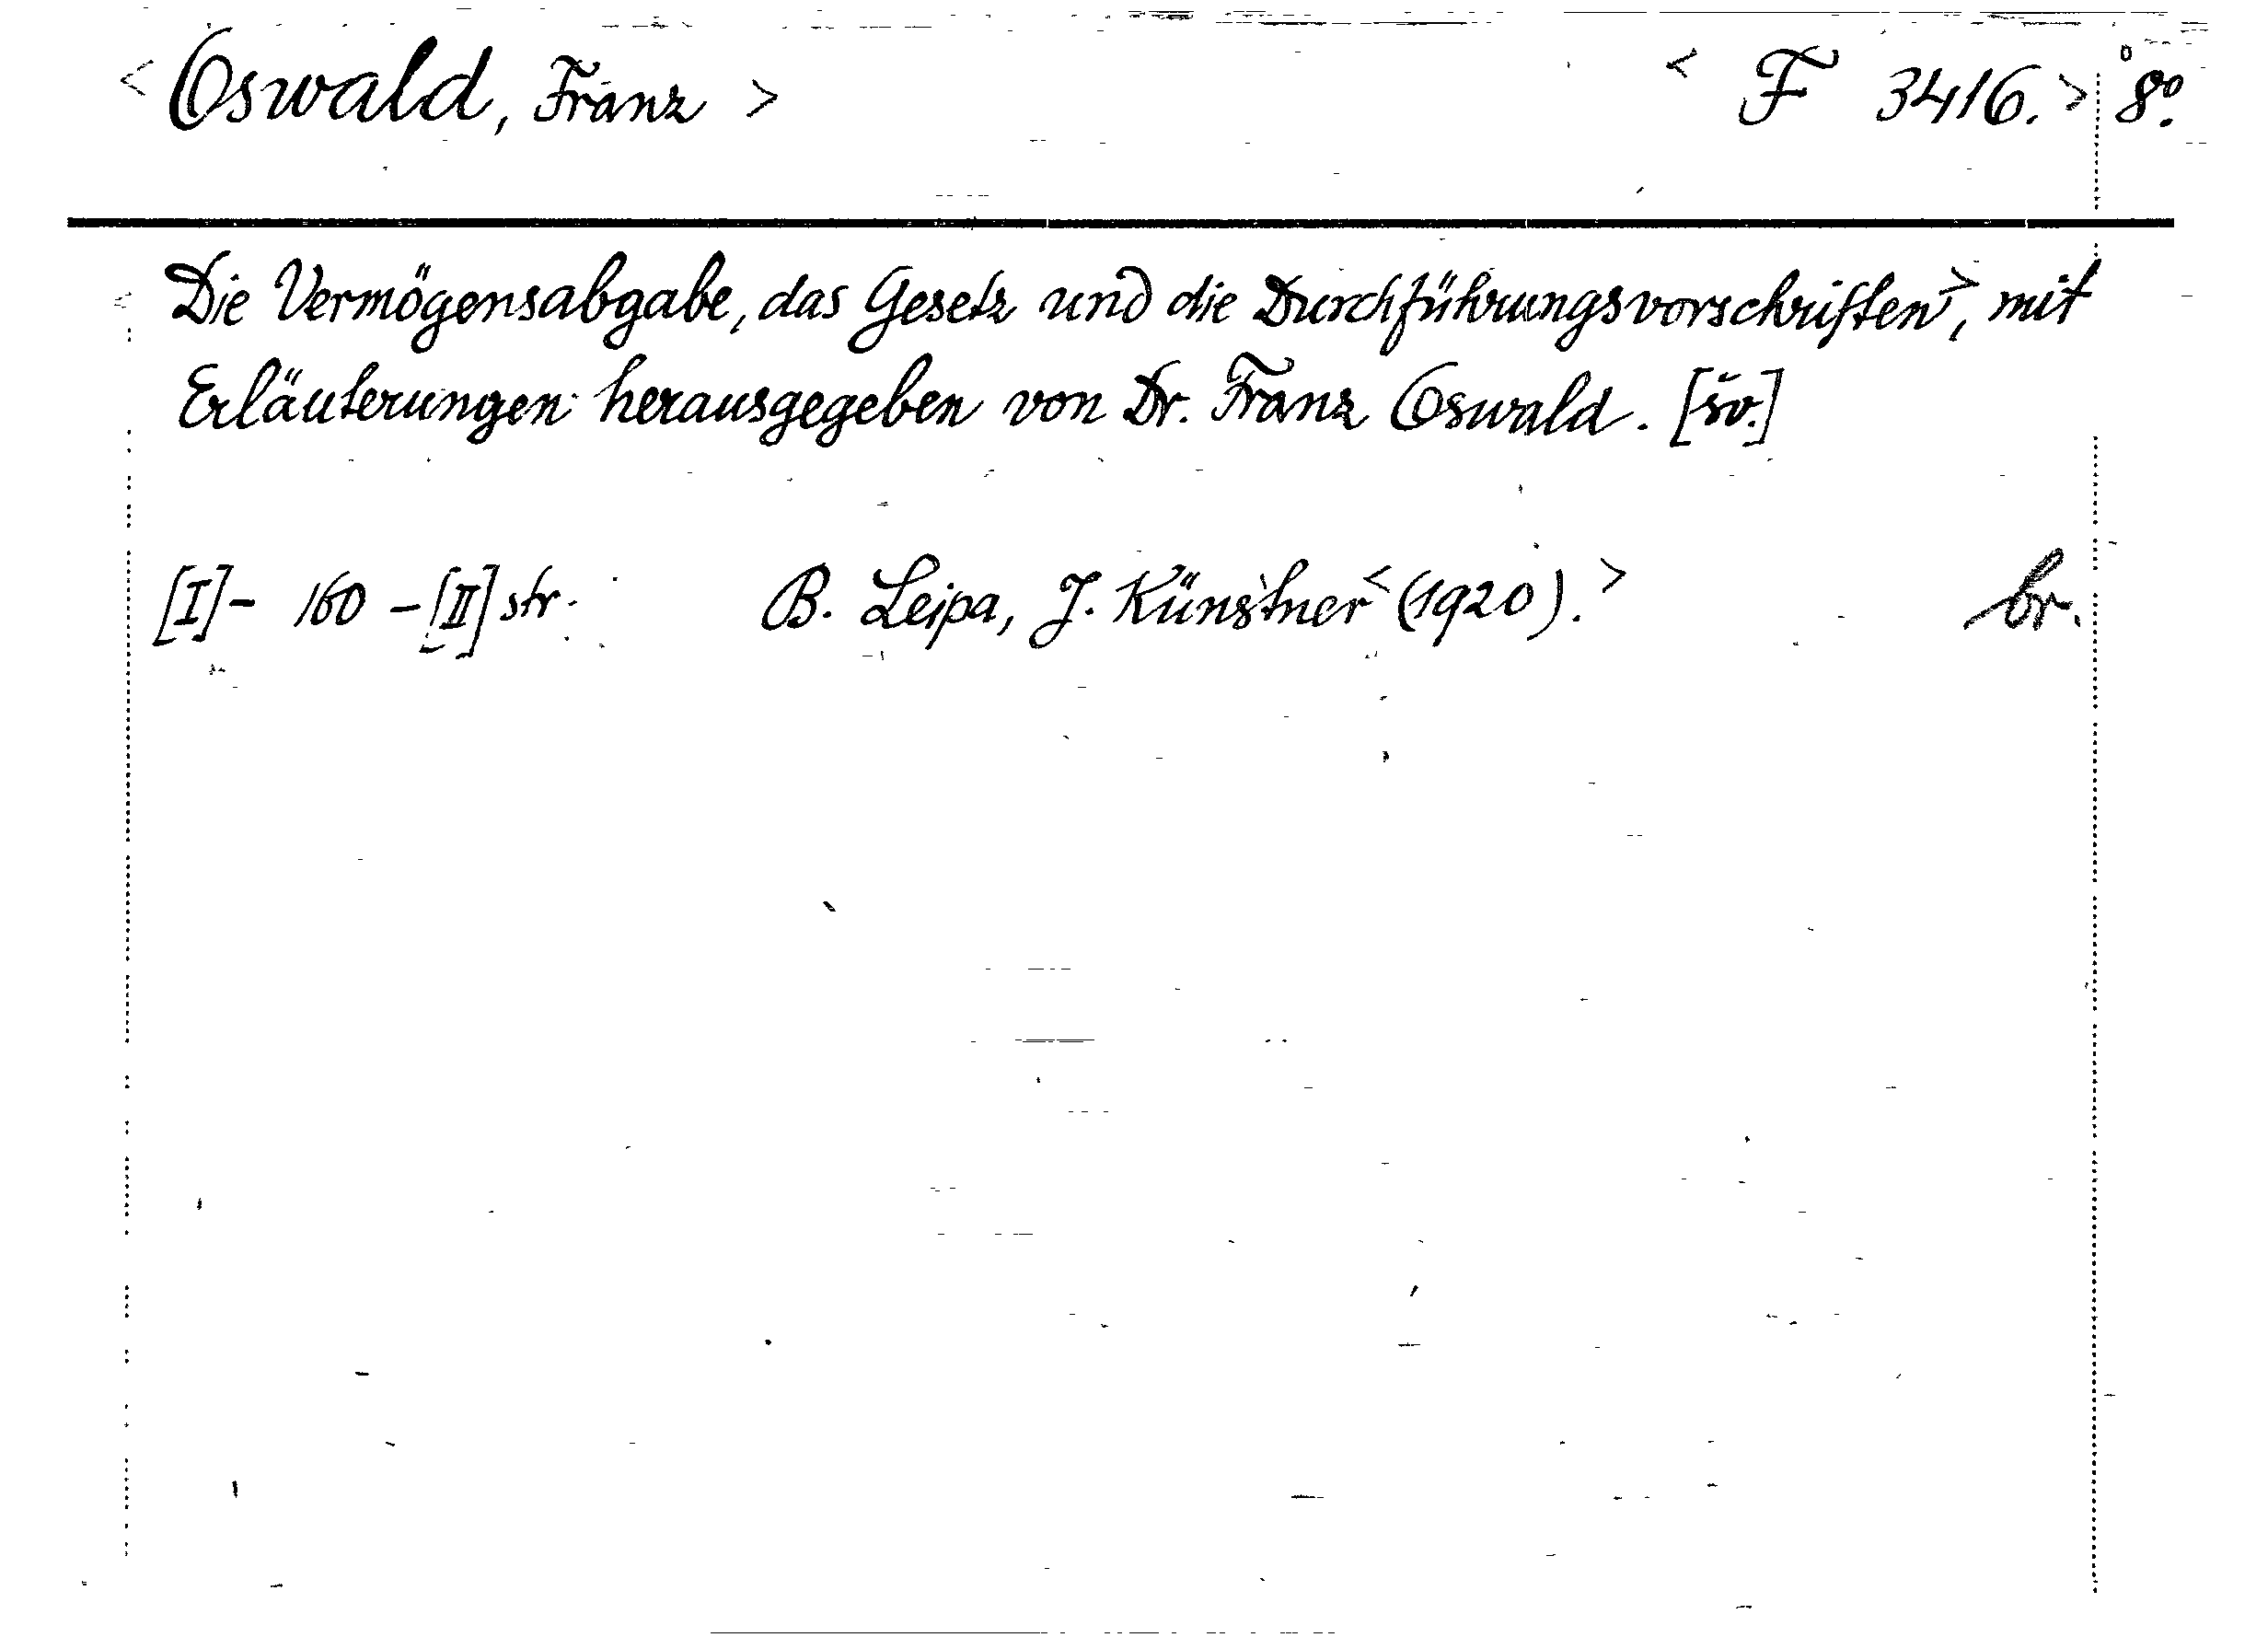 <Oswald, Franz> <F 3416.> 8º.
<Die Vermögensabgabe, das Gesetz und die Durchführungsvorschriften>, mit
Erläuterungen herausgegeben von Dr. Franz Oswald. [šv.]
[I]- 160 -[II] str. B. Leipa, J. Künstner <(1920).> br.